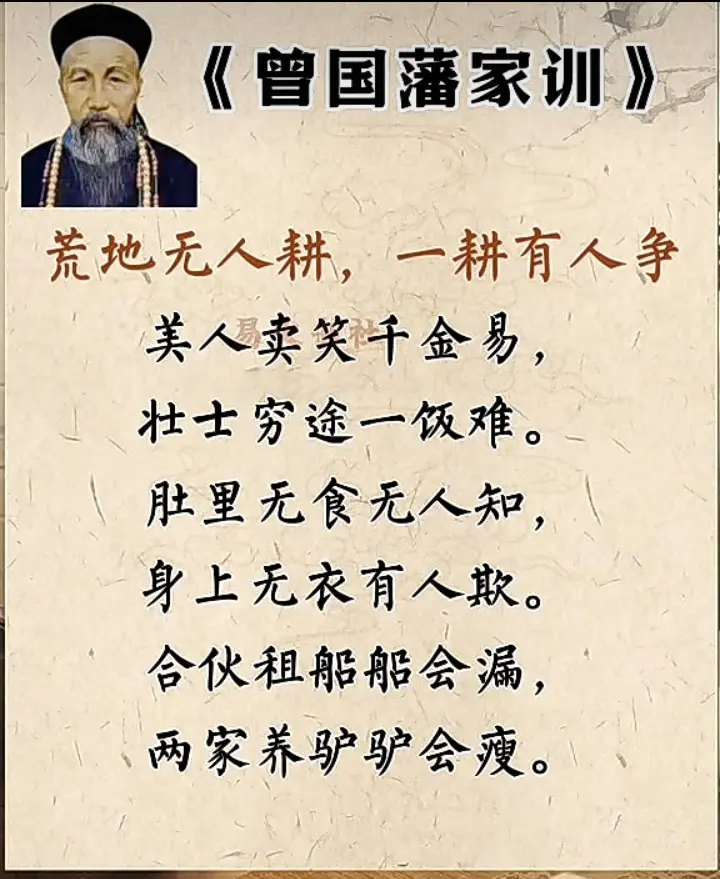 《曾国藩家训》
荒地无人耕，一耕有人争
美人卖笑千金易，
壮士穷途一饭难。
肚里无食无人知，
身上无衣有人欺。
合伙租船船会漏，
两家养驴驴会瘦。